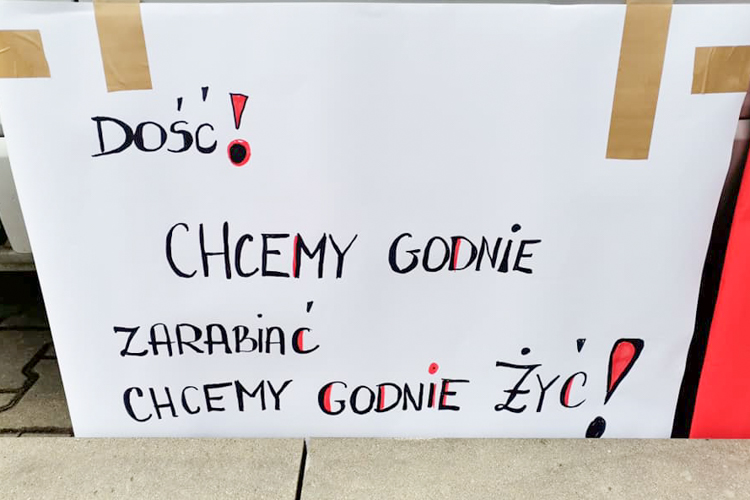 DOŚĆ!
CHCEMY GODNIE
ZARABIAĆ
CHCEMY GODNIE ŻYĆ!